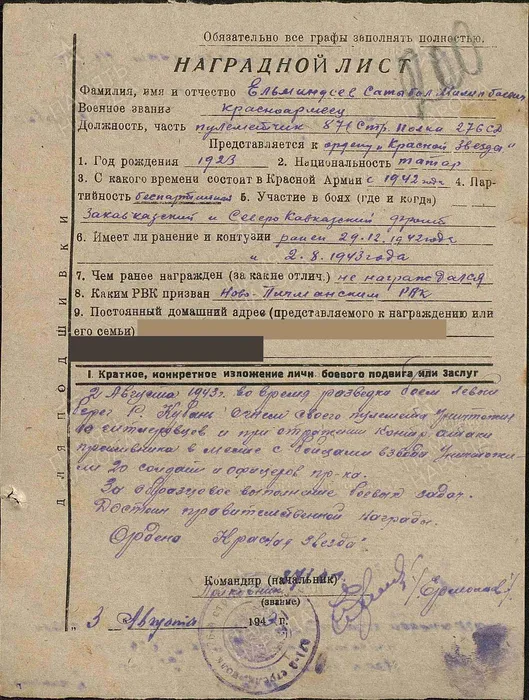 Обязательно все графы заполнять полностью.
200
НАГРАДНОЙ ЛИСТ
Фамилия, имя и отчество Ельминдеев
Военное звание красноармеец
Должность, часть пулеметчик 871 Стр. Полка 276 СД
Представляется к ордену „Красной Звезда"
1. Год рождения 1923 2. Национальность татар
3. С какого времени состоит в Красной Армии с 1942 года 4. Пар-
тийность беспартийный 5. Участие в боях (где и когда)
Закавказский и Северо Кавказский фронт
6. Имеет ли ранение и контузии ранен 29.12.1942 года
и 2.8.1943 года
7. Чем ранее награжден (за какие отлич.) не награждался
8. Каким РВК призван РВК
9. Постоянный домашний адрес (представляемого к награждению или
его семьи)
I. Краткое, конкретное изложение личн. боевого подвига или заслуг
2 Августа 1943 г. во время разведки боем левый
берег р. Кубань огнем своего пулемета уничтожил
гитлеровцев и при отражении контр атаки
противника в месте с бойцами взвода уничтожи-
ли 20 солдат и офицеров пр-ка.
За образцовое выполнение боевых задач.
Достоин правительственной награды.
Ордена Красная звезда
Командир (начальник) 871 СП
Полковник
(звание)
/Ермолаев/
3 Августа 194 г.
ДЛЯ ПОДШИВКИ